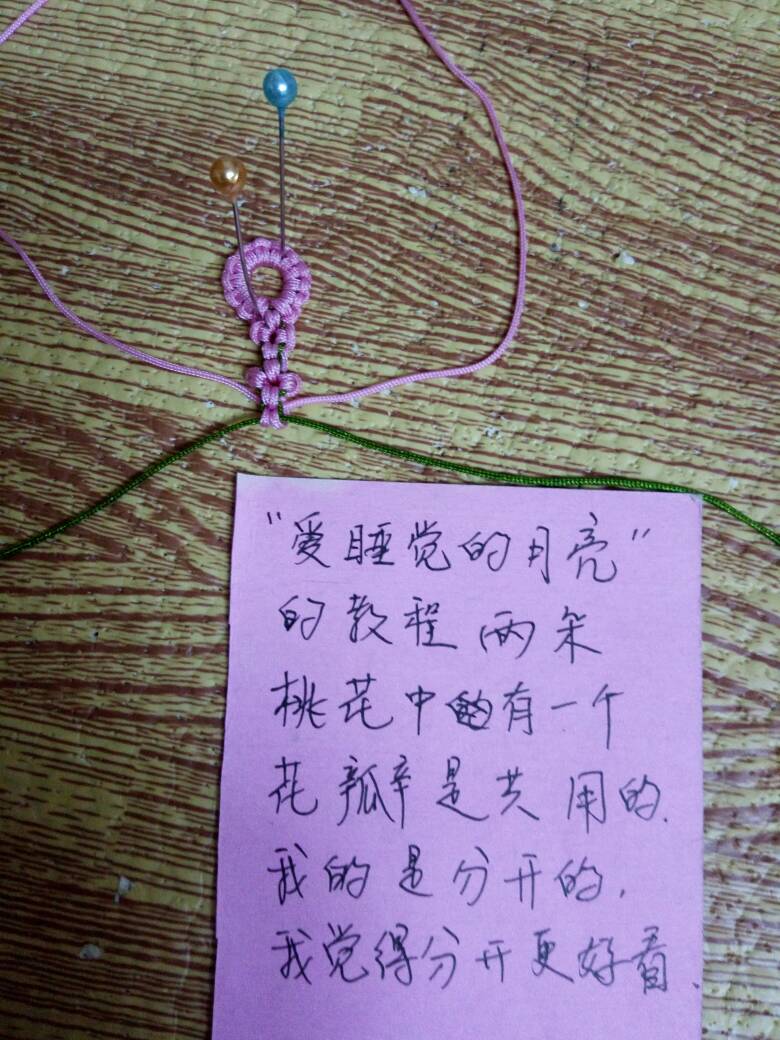 "爱睡觉的月亮"
的教程两朵
桃花中有一个
花瓣是共用的.
我的是分开的,
我觉得分开更好看.